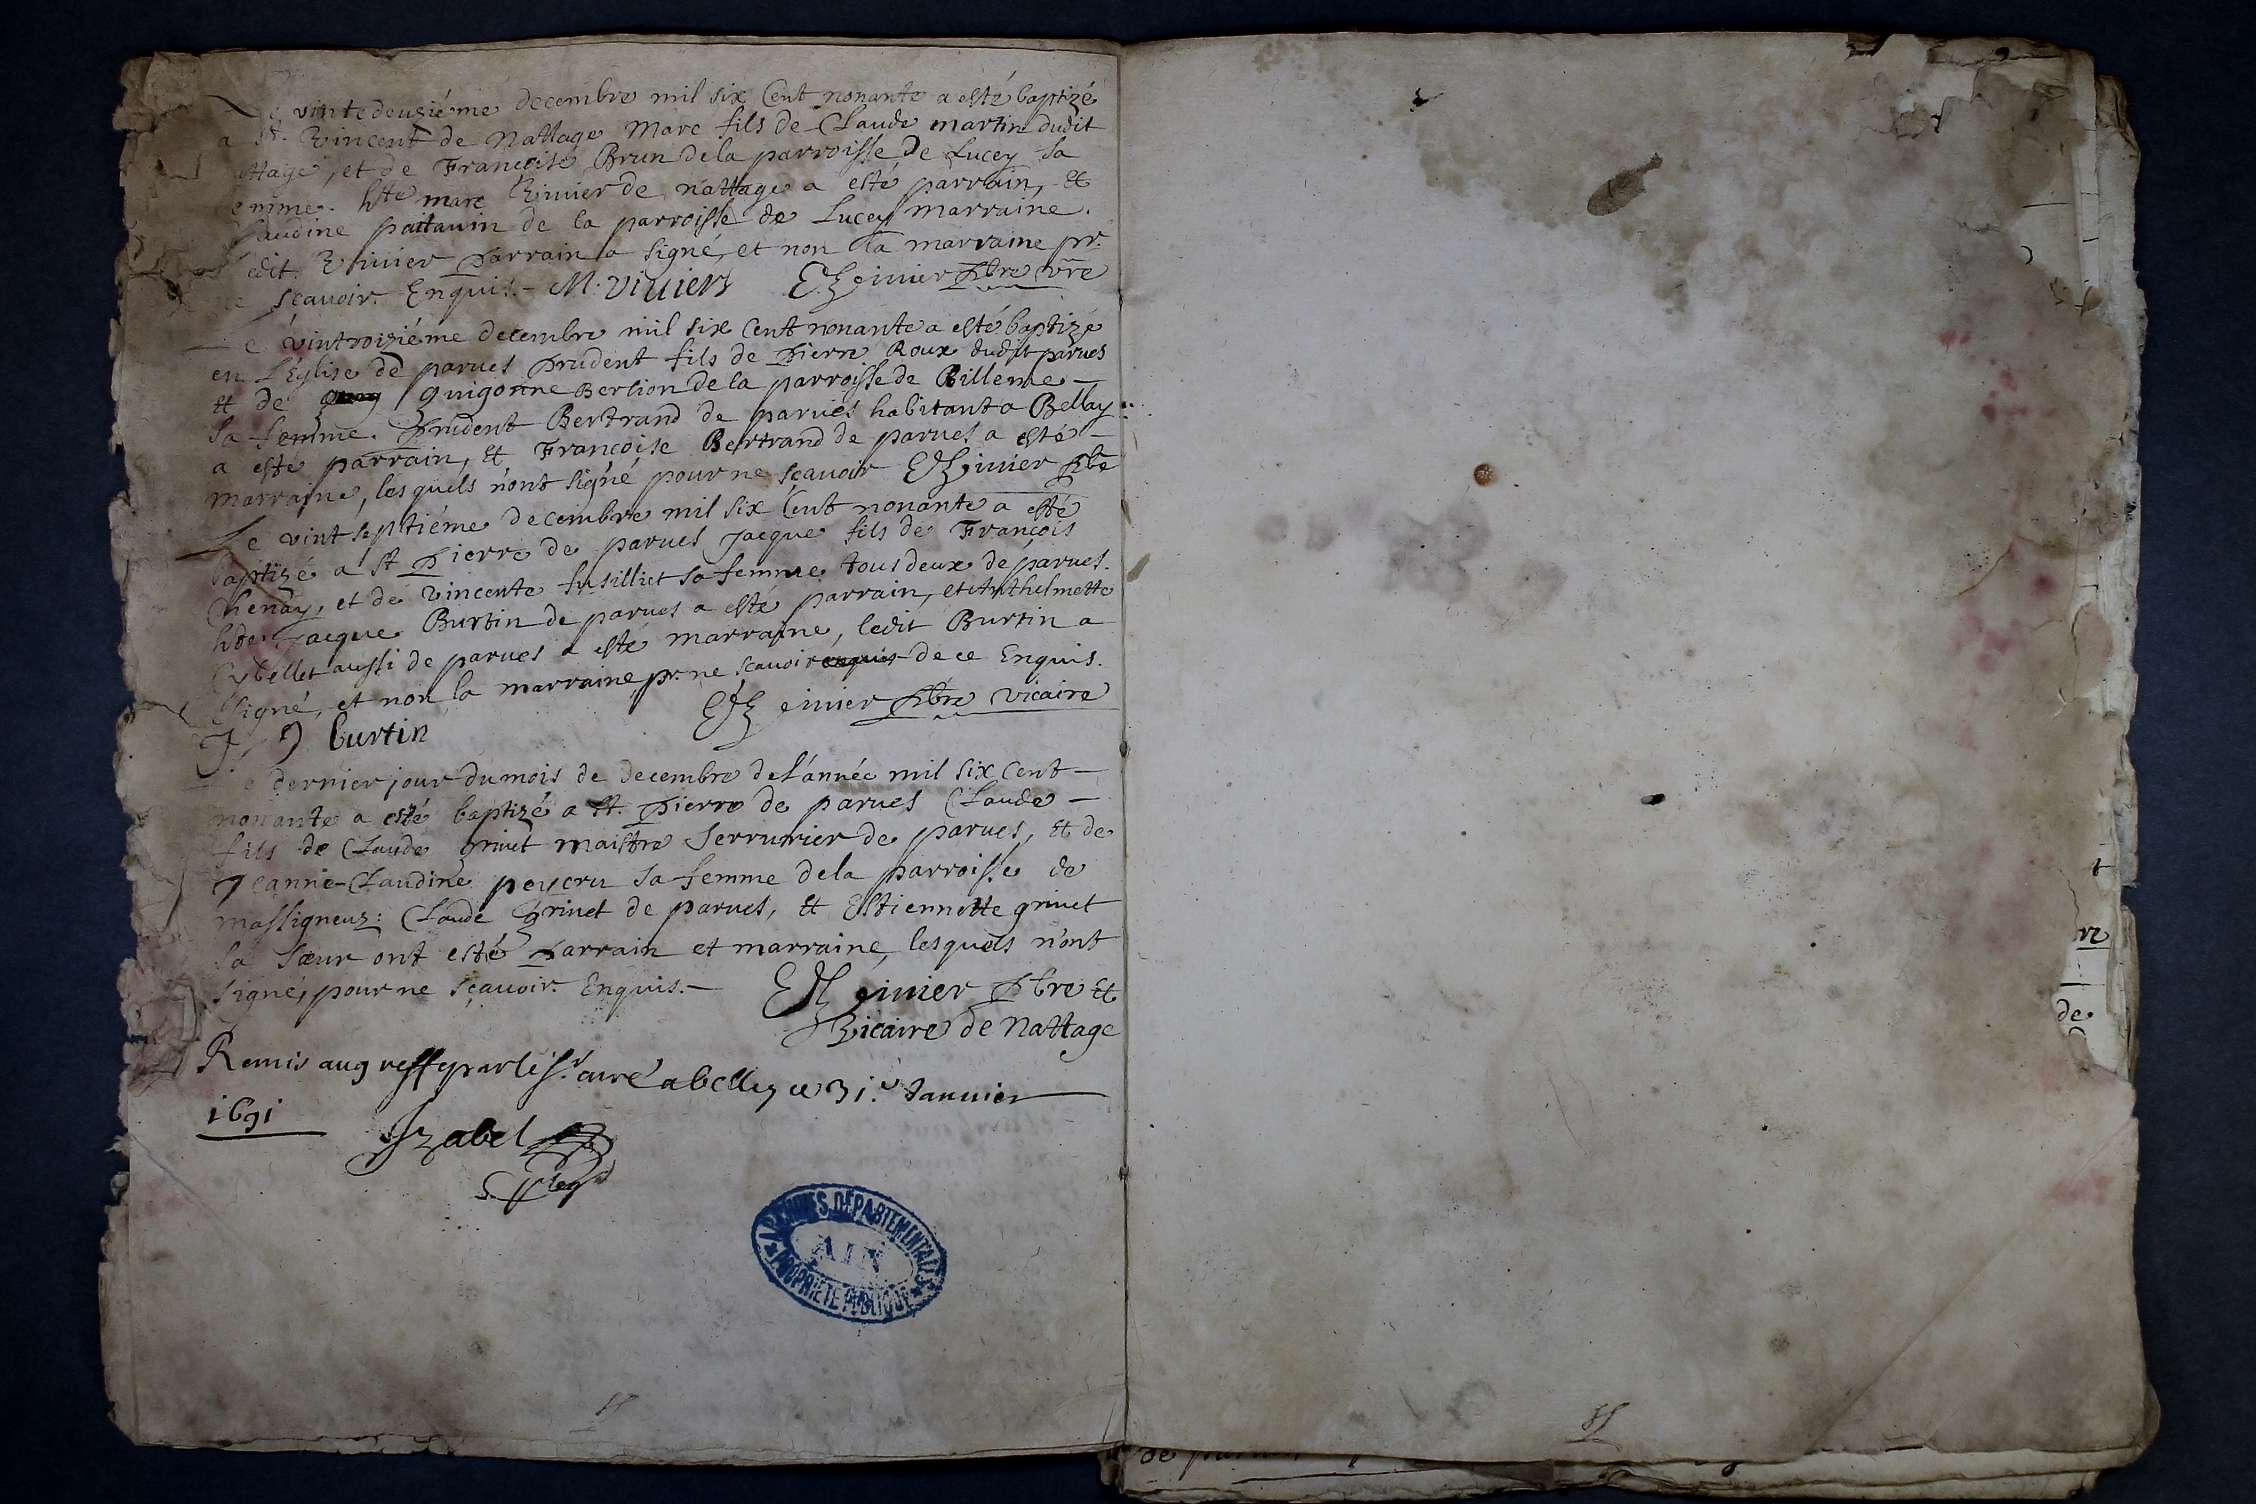 Le vintedeuziéme decembre mil six Cent nonante a esté baptizé
a St. Vincent de Nattage Marc fils de Claude martin dudit
attage, et de Francoise Brun dela parroisse de Lucey sa
emme. hte marc Vivier de nattage a esté parrain, et
laudine paitauin de la parroisse de Lucey marraine.
ledit Vivier Parrain a signé, et non la marraine pr.
ne sçavoir. Enquis. - M. viuiers E. Iuinier Ptre vre
Le vintroiziéme decembre mil six Cent nonante a esté baptizé
en L'Eglise de parues Prudent fils de Pierre Roux dudit parues
et de guigonne Berlion dela parroisse de Billeme -
sa femme. Prudent Bertrand de parues habitant a Bellay
a esté parrain, et Françoise Bertrand de parues a esté -
marraine, lesquels n'ont signé pour ne sçavoir Iuinier Ptre
Le vint septiéme decembre mil six Cent nonante a esté
baptizé a St Pierre de parues jacque fils de François
henay, et de vincente fusilliet sa femme tous deux de parues.
hte jacque Burtin de parues a esté parrain, et Anthelmette
Cybellet aussi de parues a esté marraine, ledit Burtin a
signé, et non la marraine pr ne scavoir enquis de ce Enquis.
Iuinier Ptre vicaire
J. burtin
Le dernier jour du mois de decembre de l'année mil six Cent -
nonante a esté baptizé a St. Pierre de parues Claude -
fils de Claude grinet maistre Serrurier de parues, et de
Jeanne-Claudine peycru sa femme dela parroisse de
massigneuz: Claude Grinet de parues, et Estiennette grinet
sa sœur ont esté Parrain et marraine, lesquels n'ont
signé, pour ne sçavoir. Enquis. - Iuinier Ptre et
Vicaire de Nattage
Remis au greffe par le sr. curé a belley ce 31.e Januier
1691
Izabel
ARCHIVES DÉPARTEMENTALES
AIN
PROPRIÉTÉ PUBLIQUE
de